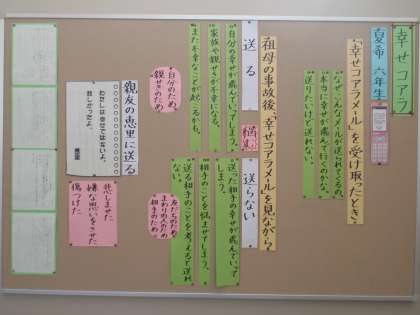 幸せコアラ
夏希 六年生
「幸せコアラメール」を受け取ったとき。
なぜこんなメールが送られてくるの。
本当に幸せが病んで行くのかな。
送りたいけど送れない。
祖母の事故後、「幸せコアラメール」を見ながら
送る
悩み
送らない
自分の幸せが病んでいってしまう。
家族や親せきが不幸になる。
また不幸なことが起こるかも。
送った相手の幸せが病んでいってしまう。
相手のことを悩ませてしまう。
送る相手のことを考えると送れない
自分のため
親せきのため
友だちのため
まわりの人のため
相手のため。
親友の恵里に送る
わたしは幸せではないよ。
悲しかったよ。
恵里
悲しませた
嫌な思いをさせた
傷つけた